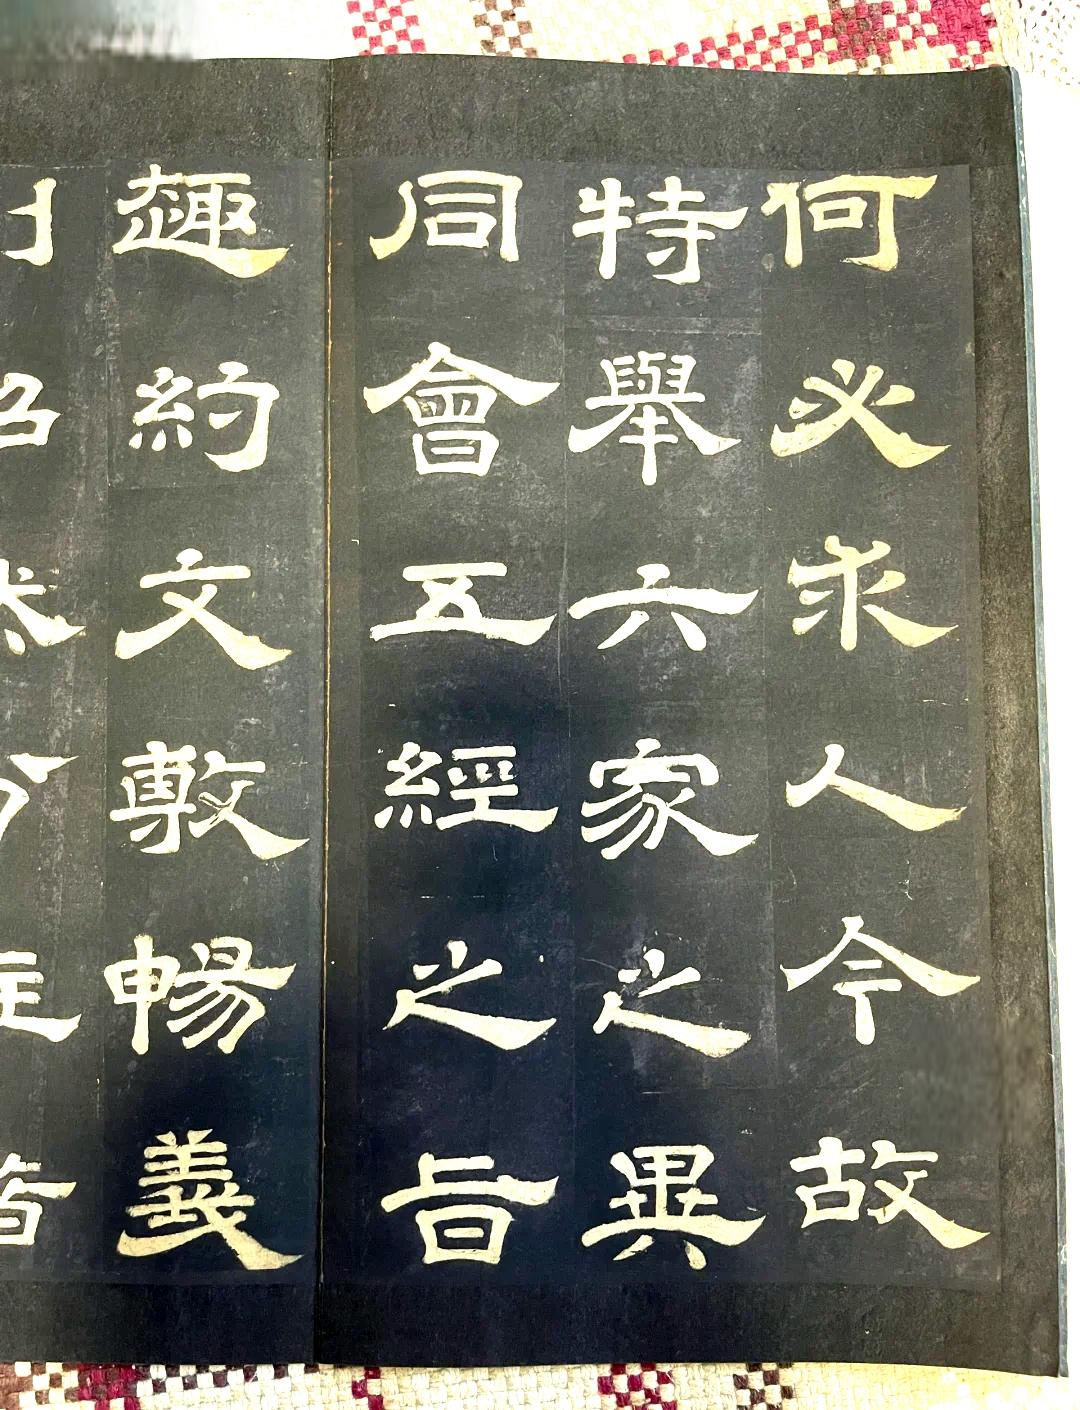 何必求人今故
特舉六家之異
同會五經之旨
趣約文敷暢義